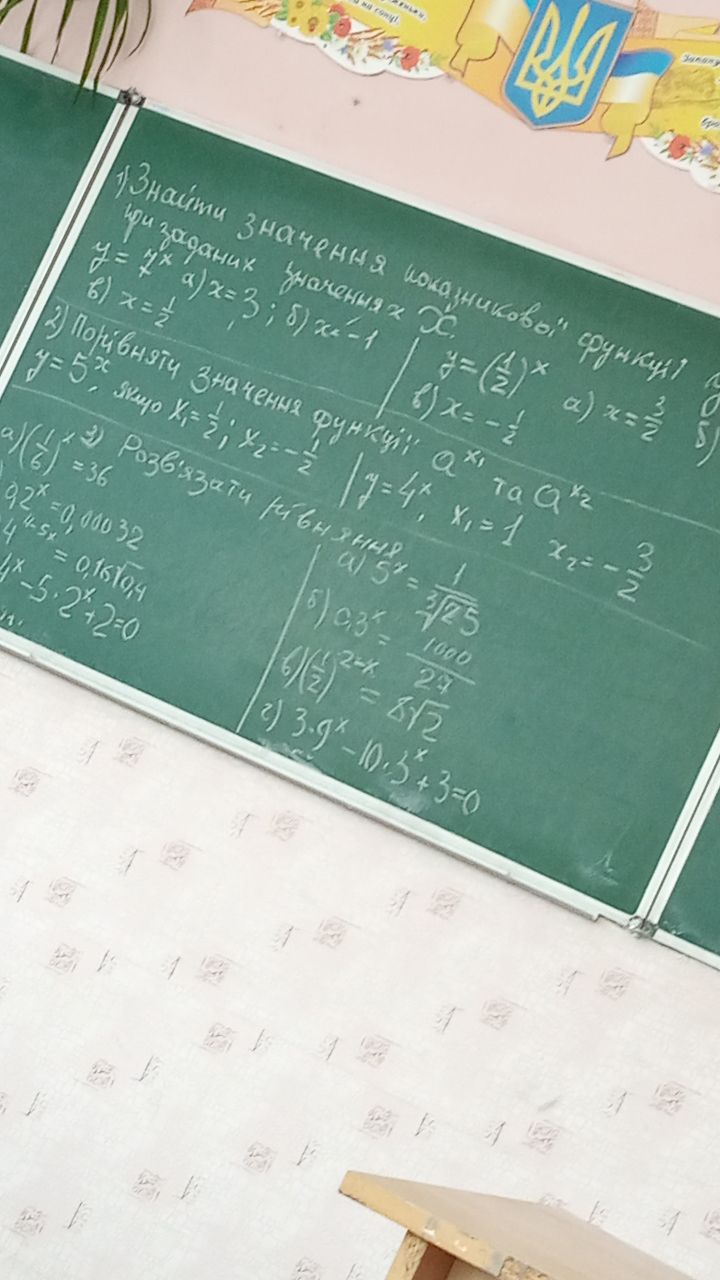 на сонці.
1) Знайти значення показникової функції
при заданих значеннях x.
y = 7ˣ а) x = 3; б) x = -1
в) x = 1/2
y = (1/2)ˣ а) x = 3/2
в) x = -1/2 б)
2) Порівняти значення функції aˣ¹ та aˣ²
y = 5ˣ, якщо x₁ = 1/2; x₂ = -1/2
y = 4ˣ, x₁ = 1 x₂ = -3/2
3) Розв'язати рівняння
а) (1/6)ˣ = 36
0,2ˣ = 0,00032
4⁴⁻⁵ˣ = 0,16√0,4
4ˣ - 5·2ˣ + 2 = 0
а) 5ˣ = 1/∛25
б) 0,3ˣ = 1000/27
в) (1/2)²⁻ˣ = 8√2
г) 3·9ˣ - 10·3ˣ + 3 = 0